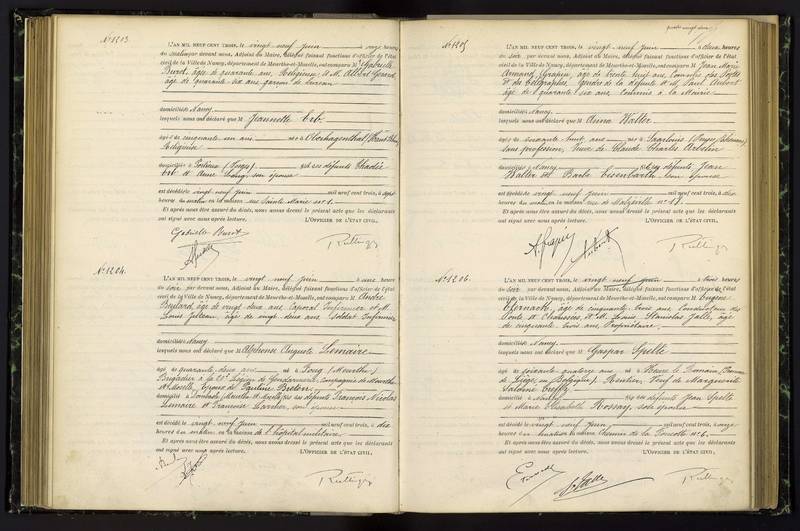 N° 1203.
L'AN MIL NEUF CENT TROIS, le vingt neuf juin à onze heures
du matin par devant nous, Adjoint au Maire, délégué faisant fonctions d'officier de l'état
civil de la Ville de Nancy, département de Meurthe-et-Moselle, ont comparu M Gabrielle
Burot, âgée de quarante ans, Religieuse, et M. Albert Gérard,
âgé de quarante six ans, garçon de bureau
domiciliés à Nancy
lesquels nous ont déclaré que M Jeannette Erb
âgée de cinquante un ans née à
Religieuse
domiciliée à (Vosges) fille des défunts
Erb et Anne son épouse
est décédée le vingt neuf juin mil neuf cent trois, à
heures du matin en la maison rue Sainte Marie n° 1.
Et après nous être assuré du décès, nous avons dressé le présent acte que les déclarants
ont signé avec nous après lecture. L'OFFICIER DE L'ÉTAT CIVIL,
Gabrielle Burot
N° 1204.
L'AN MIL NEUF CENT TROIS, le vingt neuf juin à une heure
du soir par devant nous, Adjoint au Maire, délégué faisant fonctions d'officier de l'état
civil de la Ville de Nancy, département de Meurthe-et-Moselle, ont comparu M André
âgé de vingt deux ans, Caporal Infirmier et M.
Louis âgé de vingt deux ans soldat Infirmier
domiciliés à Nancy
lesquels nous ont déclaré que M Alphonse Auguste Lemaire
âgé de quarante deux ans né à Foug (Meurthe)
Brigadier à la Légion de Gendarmerie, Compagnie de Meurthe
et Moselle, Epoux de Pauline Breton
domicilié à Dombasle (Meurthe et Moselle) fils des défunts François Nicolas
Lemaire et Françoise son épouse
est décédé le vingt neuf juin mil neuf cent trois, à dix
heures du matin en la maison de l'hôpital militaire
Et après nous être assuré du décès, nous avons dressé le présent acte que les déclarants
ont signé avec nous après lecture. L'OFFICIER DE L'ÉTAT CIVIL,
N° 1205
L'AN MIL NEUF CENT TROIS, le vingt neuf juin à deux heures
du soir par devant nous, Adjoint au Maire, délégué faisant fonctions d'officier de l'état
civil de la Ville de Nancy, département de Meurthe-et-Moselle, ont comparu M Jean Marie
Armand âgé de trente huit ans, Commis des Postes
et des télégraphes, gendre de la défunte et M. Paul
âgé de quarante six ans, Commis à la Mairie
domiciliés à Nancy
lesquels nous ont déclaré que M Anna Walter
âgée de soixante huit ans née à Saarlouis
sans profession, Veuve de Claude Charles
domiciliée à Nancy fille des défunts Jean
Walter et Barbe Eisenbarth son épouse
est décédée le vingt neuf juin mil neuf cent trois, à dix
heures du matin en la maison rue de Malzéville n° 18
Et après nous être assuré du décès, nous avons dressé le présent acte que les déclarants
ont signé avec nous après lecture. L'OFFICIER DE L'ÉTAT CIVIL,
N° 1206.
L'AN MIL NEUF CENT TROIS, le vingt neuf juin à trois heures
du soir par devant nous, Adjoint au Maire, délégué faisant fonctions d'officier de l'état
civil de la Ville de Nancy, département de Meurthe-et-Moselle, ont comparu M Eugène
âgé de cinquante trois ans Conducteur des
Ponts et Chaussées et M. Louis Stanislas Jallé, âgé
de cinquante trois ans, Propriétaire
domiciliés à Nancy
lesquels nous ont déclaré que M Gaspar Spelte
âgé de soixante quatorze ans né à
de Liège en Belgique). Rentier, Veuf de Marguerite
Salomé
domicilié à Nancy fils des défunts Jean Spelte
et Marie Elisabeth son épouse
est décédé le vingt neuf juin mil neuf cent trois, à onze
heures du matin en la maison Chemin de la n° 6
Et après nous être assuré du décès, nous avons dressé le présent acte que les déclarants
ont signé avec nous après lecture. L'OFFICIER DE L'ÉTAT CIVIL,